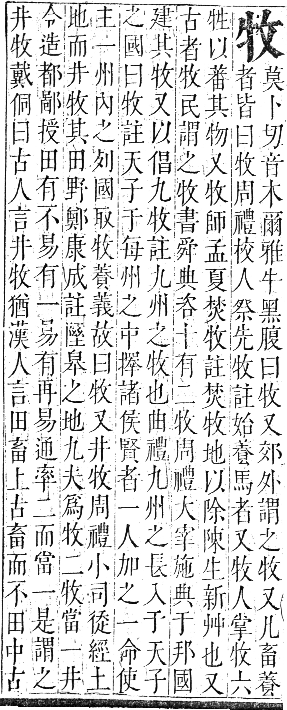 牧莫卜切音木爾雅牛黑腹曰牧又郊外謂之牧又凡畜養
者皆曰牧周禮校人祭先牧註始養馬者又牧人掌牧六
牲以蕃其物又牧師孟夏焚牧註焚牧地以除陳生新艸也又
古者牧民謂之牧書舜典咨十有二牧周禮大宰施典于邦國
建其牧又以倡九牧註九州之牧也曲禮九州之長入于天子
之國曰牧註天子于每州之中擇諸侯賢者一人加之一命使
主一州內之列國取牧養義故曰牧又井牧周禮小司徒經土
地而井牧其田野鄭康成註隰皋之地九夫爲牧二牧當一井
令造都鄙授田有不易有一易有再易通率二而當一是謂之
井牧戴侗曰古人言井牧猶漢人言田畜上古畜而不田中古